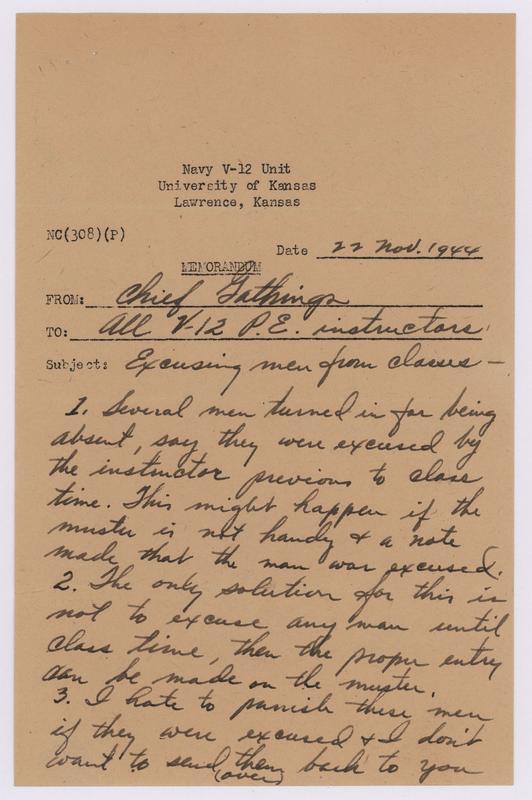 Navy V-12 Unit
University of Kansas
Lawrence, Kansas
NC(308)(P)
Date 22 Nov. 1944
MEMORANDUM
FROM: Chief Gathings
TO: All V-12 P.E. instructors
Subject: Excusing men from classes —
1. Several men turned in for being
absent, say they were excused by
the instructor previous to class
time. This might happen if the
muster is not handy & a note
made that the man was excused.
2. The only solution for this is
not to excuse any man until
class time, then the proper entry
can be made on the muster.
3. I hate to punish these men
if they were excused & I don't
want to send them back to you
(over)